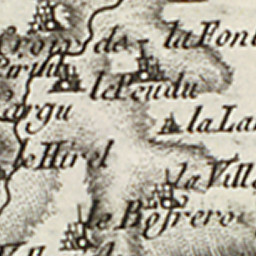 Croix de
la Font
le Peudu
argu
la La
le Hirel
la Ville
le Bosrero